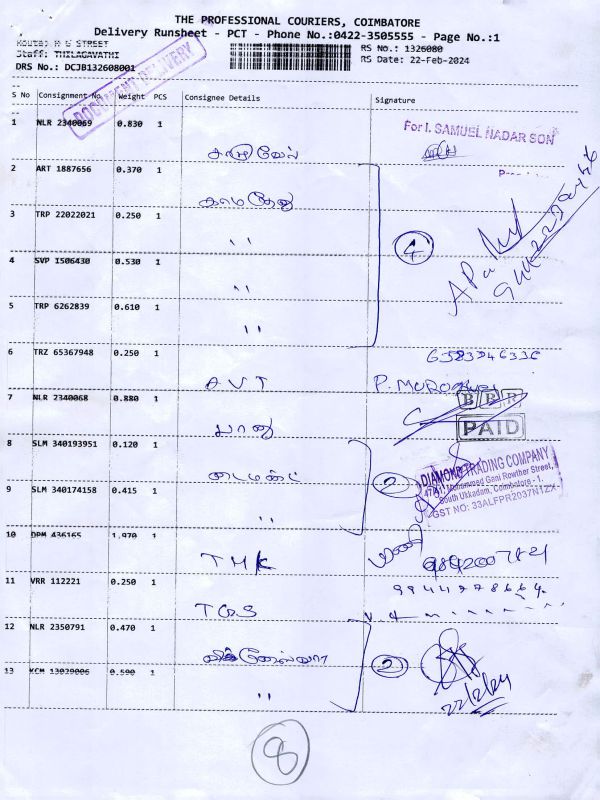 THE PROFESSIONAL COURIERS, COIMBATORE
Delivery Runsheet - PCT - Phone No.:0422-3505555 - Page No.:1
Staff: THILAGAVATHI
RS No.: 1326080
DRS No.: DCJB132608001
RS Date: 22-Feb-2024
DOCUMENT DELIVERY
S No Consignment No. Weight PCS Consignee Details Signature
1 NLR 2340069 0.830 1
For I. SAMUEL NADAR SON
சாமுவேல்
2 ART 1887656 0.370 1
காமதேனு
3 TRP 22022021 0.250 1
" 4
4 SVP 1506430 0.530 1
"
5 TRP 6262839 0.610 1
"
6 TRZ 65367948 0.250 1
6383346336
AVT P. MUROGAN
7 NLR 2340068 0.880 1
பானு
PAID
8 SLM 340193951 0.120 1
டைமண்ட் 2
DIAMOND TRADING COMPANY
South Ukkadam, Coimbatore - 1.
GST NO: 33ALFPR2037N1ZX
9 SLM 340174158 0.415 1
"
10 DPM 436165 1.970 1
TMK
11 VRR 112221 0.250 1
9944778664
12 NLR 2350791 0.470 1
2
13 KCM 13029006 0.590 1
"
22/2/24
8